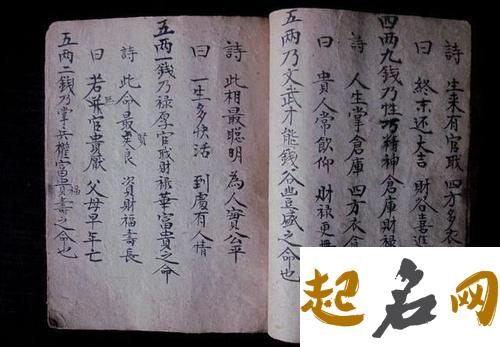 詩 生来有官职 四方多衣
曰 終末还大吉 財谷喜進
四两九錢乃性巧精神倉庫財禄
詩 人生掌倉庫 四方衣
曰 貴人常飲仰 財禄更
五两乃文武才能錢谷豊盛之命也
詩 此相最聪明 為人實公平
曰 一生多快活 到處有人情
五两一錢乃禄厚官職財禄華富貴之命
詩 此命最賢良 資財福壽長
曰 若無官貴厭 父母早年亡
五两二錢乃掌兵權富貴福壽之命也
起名网